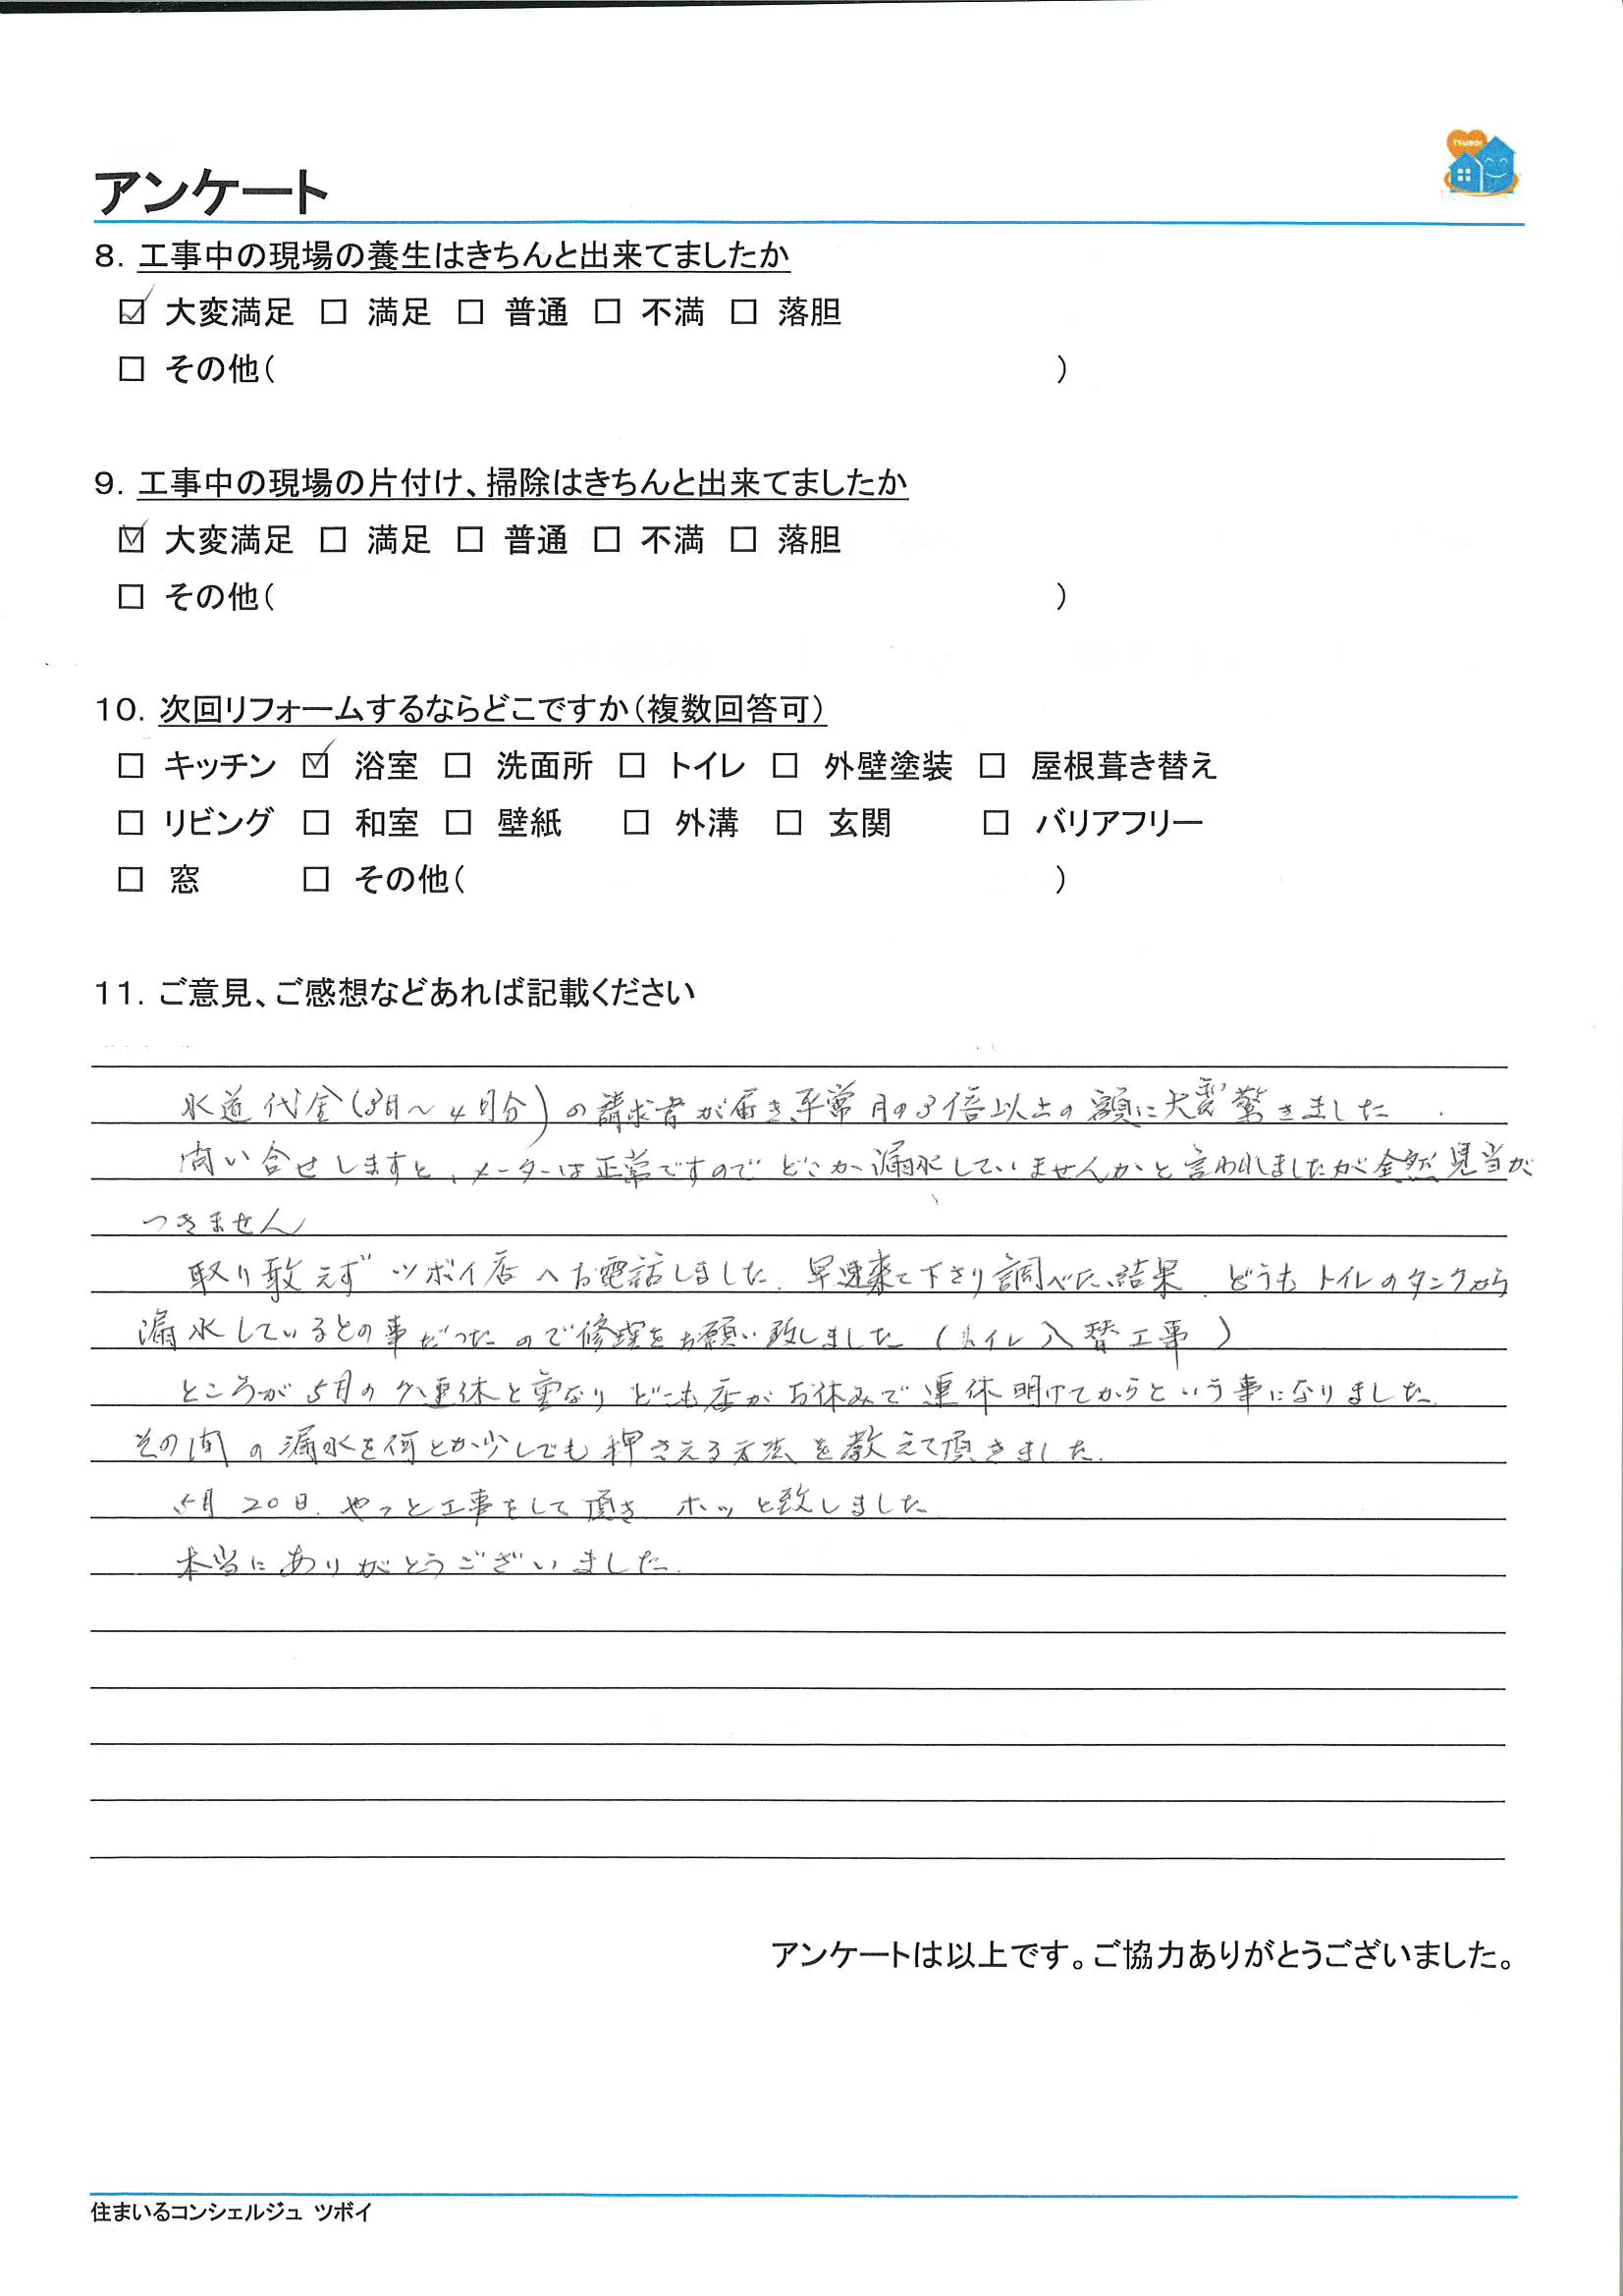 TSUBOI
アンケート
8. 工事中の現場の養生はきちんと出来てましたか
☑ 大変満足 □ 満足 □ 普通 □ 不満 □ 落胆
□ その他( )
9. 工事中の現場の片付け、掃除はきちんと出来てましたか
☑ 大変満足 □ 満足 □ 普通 □ 不満 □ 落胆
□ その他( )
10. 次回リフォームするならどこですか(複数回答可)
□ キッチン ☑ 浴室 □ 洗面所 □ トイレ □ 外壁塗装 □ 屋根葺き替え
□ リビング □ 和室 □ 壁紙 □ 外溝 □ 玄関 □ バリアフリー
□ 窓 □ その他( )
11. ご意見、ご感想などあれば記載ください
水道代金(3月~4月分)の請求書が届き、平常月の3倍以上の額に大変驚きました
問い合せしますと、メーターは正常ですのでどこか漏水していませんかと言われましたが全然見当が
つきません
取り敢えずツボイ店へお電話しました。早速来て下さり調べた結果、どうもトイレのタンクから
漏水しているとの事だったので修理をお願い致しました(トイレ入替工事)
ところが5月の連休と重なりどこも店がお休みで連休明けてからという事になりました。
その間の漏水を何とか少しでも押さえる方法を教えて頂きました。
5月20日、やっと工事をして頂きホッと致しました
本当にありがとうございました。
アンケートは以上です。ご協力ありがとうございました。
住まいるコンシェルジュ ツボイ